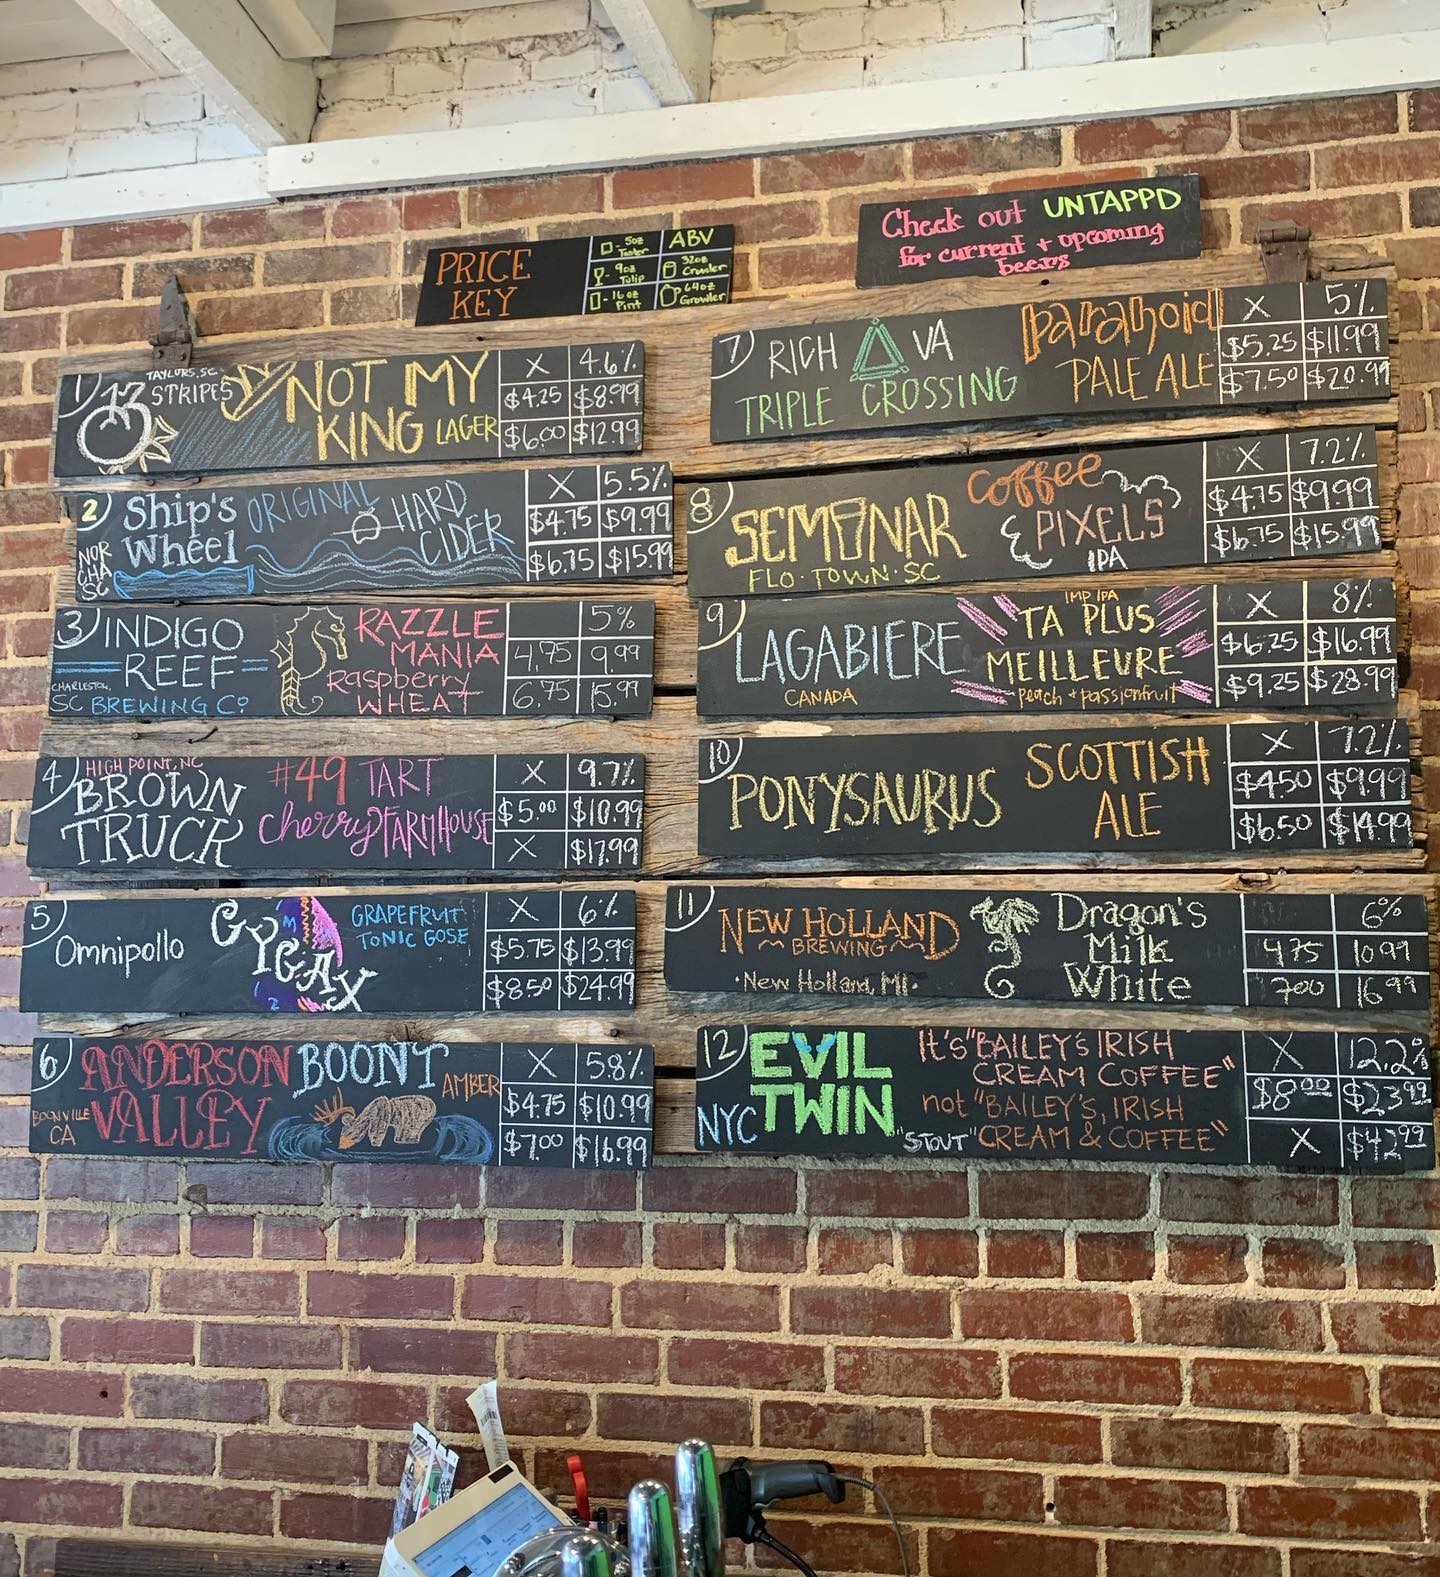 PRICE
KEY
- 5oz Taster
ABV
- 9oz Tulip
32oz Crowler
- 16oz Pint
64oz Growler
Check out UNTAPPD
for current + upcoming
beers
1
13
TAYLORS, SC.
STRIPES
NOT MY
KING LAGER
X 4.6%
$4.25 $8.99
$6.00 $12.99
2
Ship's
Wheel
NOR
CHA
SC
ORIGINAL
HARD
CIDER
X 5.5%
$4.75 $9.99
$6.75 $15.99
3
INDIGO
REEF
CHARLESTON,
SC BREWING Co
RAZZLE
MANIA
Raspberry
WHEAT
5%
4.75 9.99
6.75 15.99
4
HIGH POINT, NC
BROWN
TRUCK
#49 TART
cherry FARMHOUSE
X 9.7%
$5.00 $10.99
X $17.99
5
Omnipollo
GYGAX
GRAPEFRUIT
TONIC GOSE
X 6%
$5.75 $13.99
$8.50 $24.99
6
ANDERSON
VALLEY
BOONVILLE
CA
BOONT
AMBER
X 5.8%
$4.75 $10.99
$7.00 $16.99
7
RICH VA
TRIPLE CROSSING
paranoid
PALE ALE
X 5%
$5.25 $11.99
$7.50 $20.99
8
SEMINAR
FLO·TOWN·SC
Coffee
PIXELS
IPA
X 7.2%
$4.75 $9.99
$6.75 $15.99
9
LAGABIERE
CANADA
IMP IPA
TA PLUS
MEILLEURE
peach + passionfruit
X 8%
$6.25 $16.99
$9.25 $28.99
10
PONYSAURUS
SCOTTISH
ALE
X 7.2%
$4.50 $9.99
$6.50 $14.99
11
NEW HOLLAND
BREWING
·New Holland, MI·
Dragon's
Milk
White
6%
4.75 10.99
7.00 16.99
12
EVIL
TWIN
NYC
It's "BAILEY'S IRISH
CREAM COFFEE"
not "BAILEY'S, IRISH
"STOUT" CREAM & COFFEE"
X 12.2%
$8.00 $23.99
X $42.99